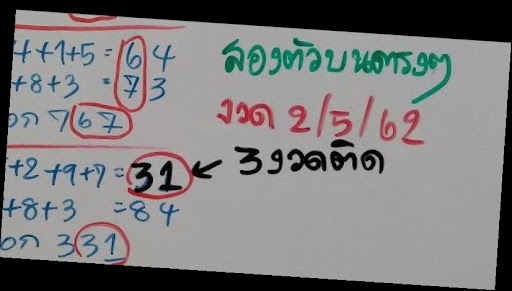 4+1+5 = 64
+8+3 = 73
อก 767
+2+9+7 = 31
+8+3 = 84
อก 331
สองตัวบนตรงๆ
งวด 2/5/62
3งวดติด